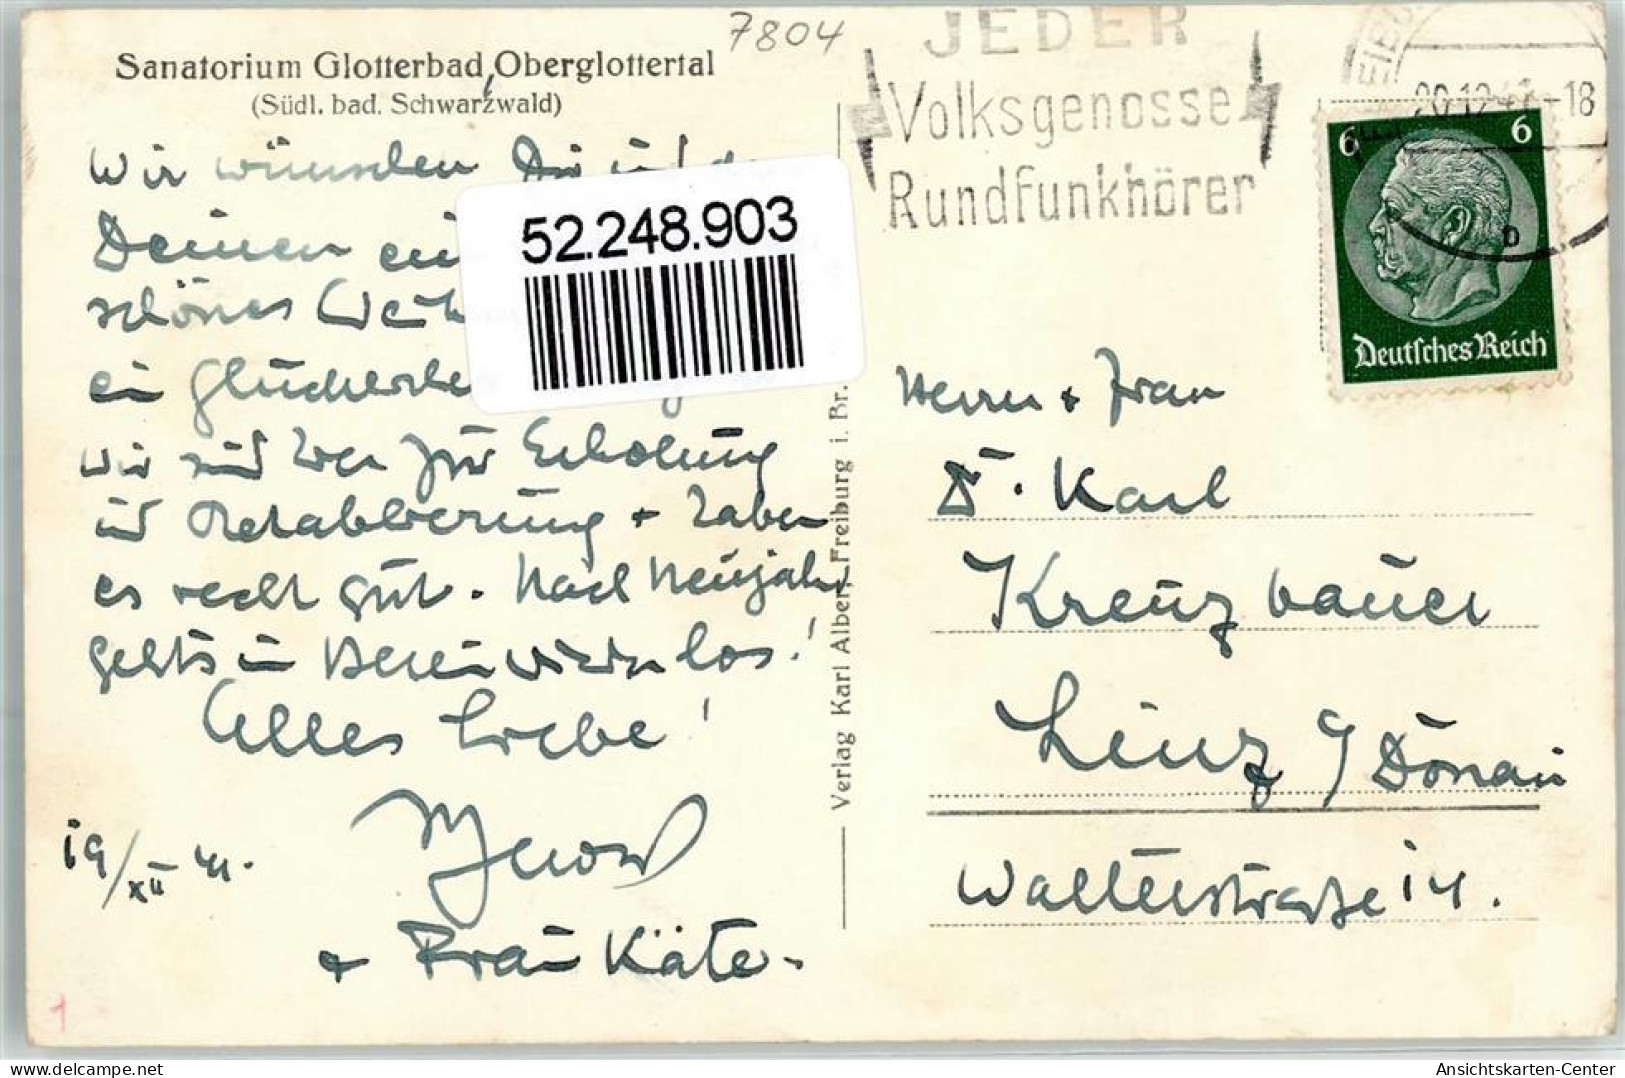 7804
Sanatorium Glotterbad, Oberglottertal
(Südl. bad. Schwarzwald)
Wir wünschen Dir und den
Deinen ein
schönes Weih
ein glückliches
52.248.903
wir sind zur Erholung
und Retablierung + haben
es recht gut. Nach Neujahr
gehts in wieder los!
Alles Liebe!
19/XII 41.
+ Frau Käte.
1
Verlag Karl Albert, Freiburg i. Br.
JEDER
Volksgenosse
Rundfunkhörer
20.12.41-18
b
6 6
Deutsches Reich
Herrn + Frau
Dr. Karl
Kreuzbauer
Linz a/Donau
Walterstrasse 14.
www.delcampe.net
Ansichtskarten-Center